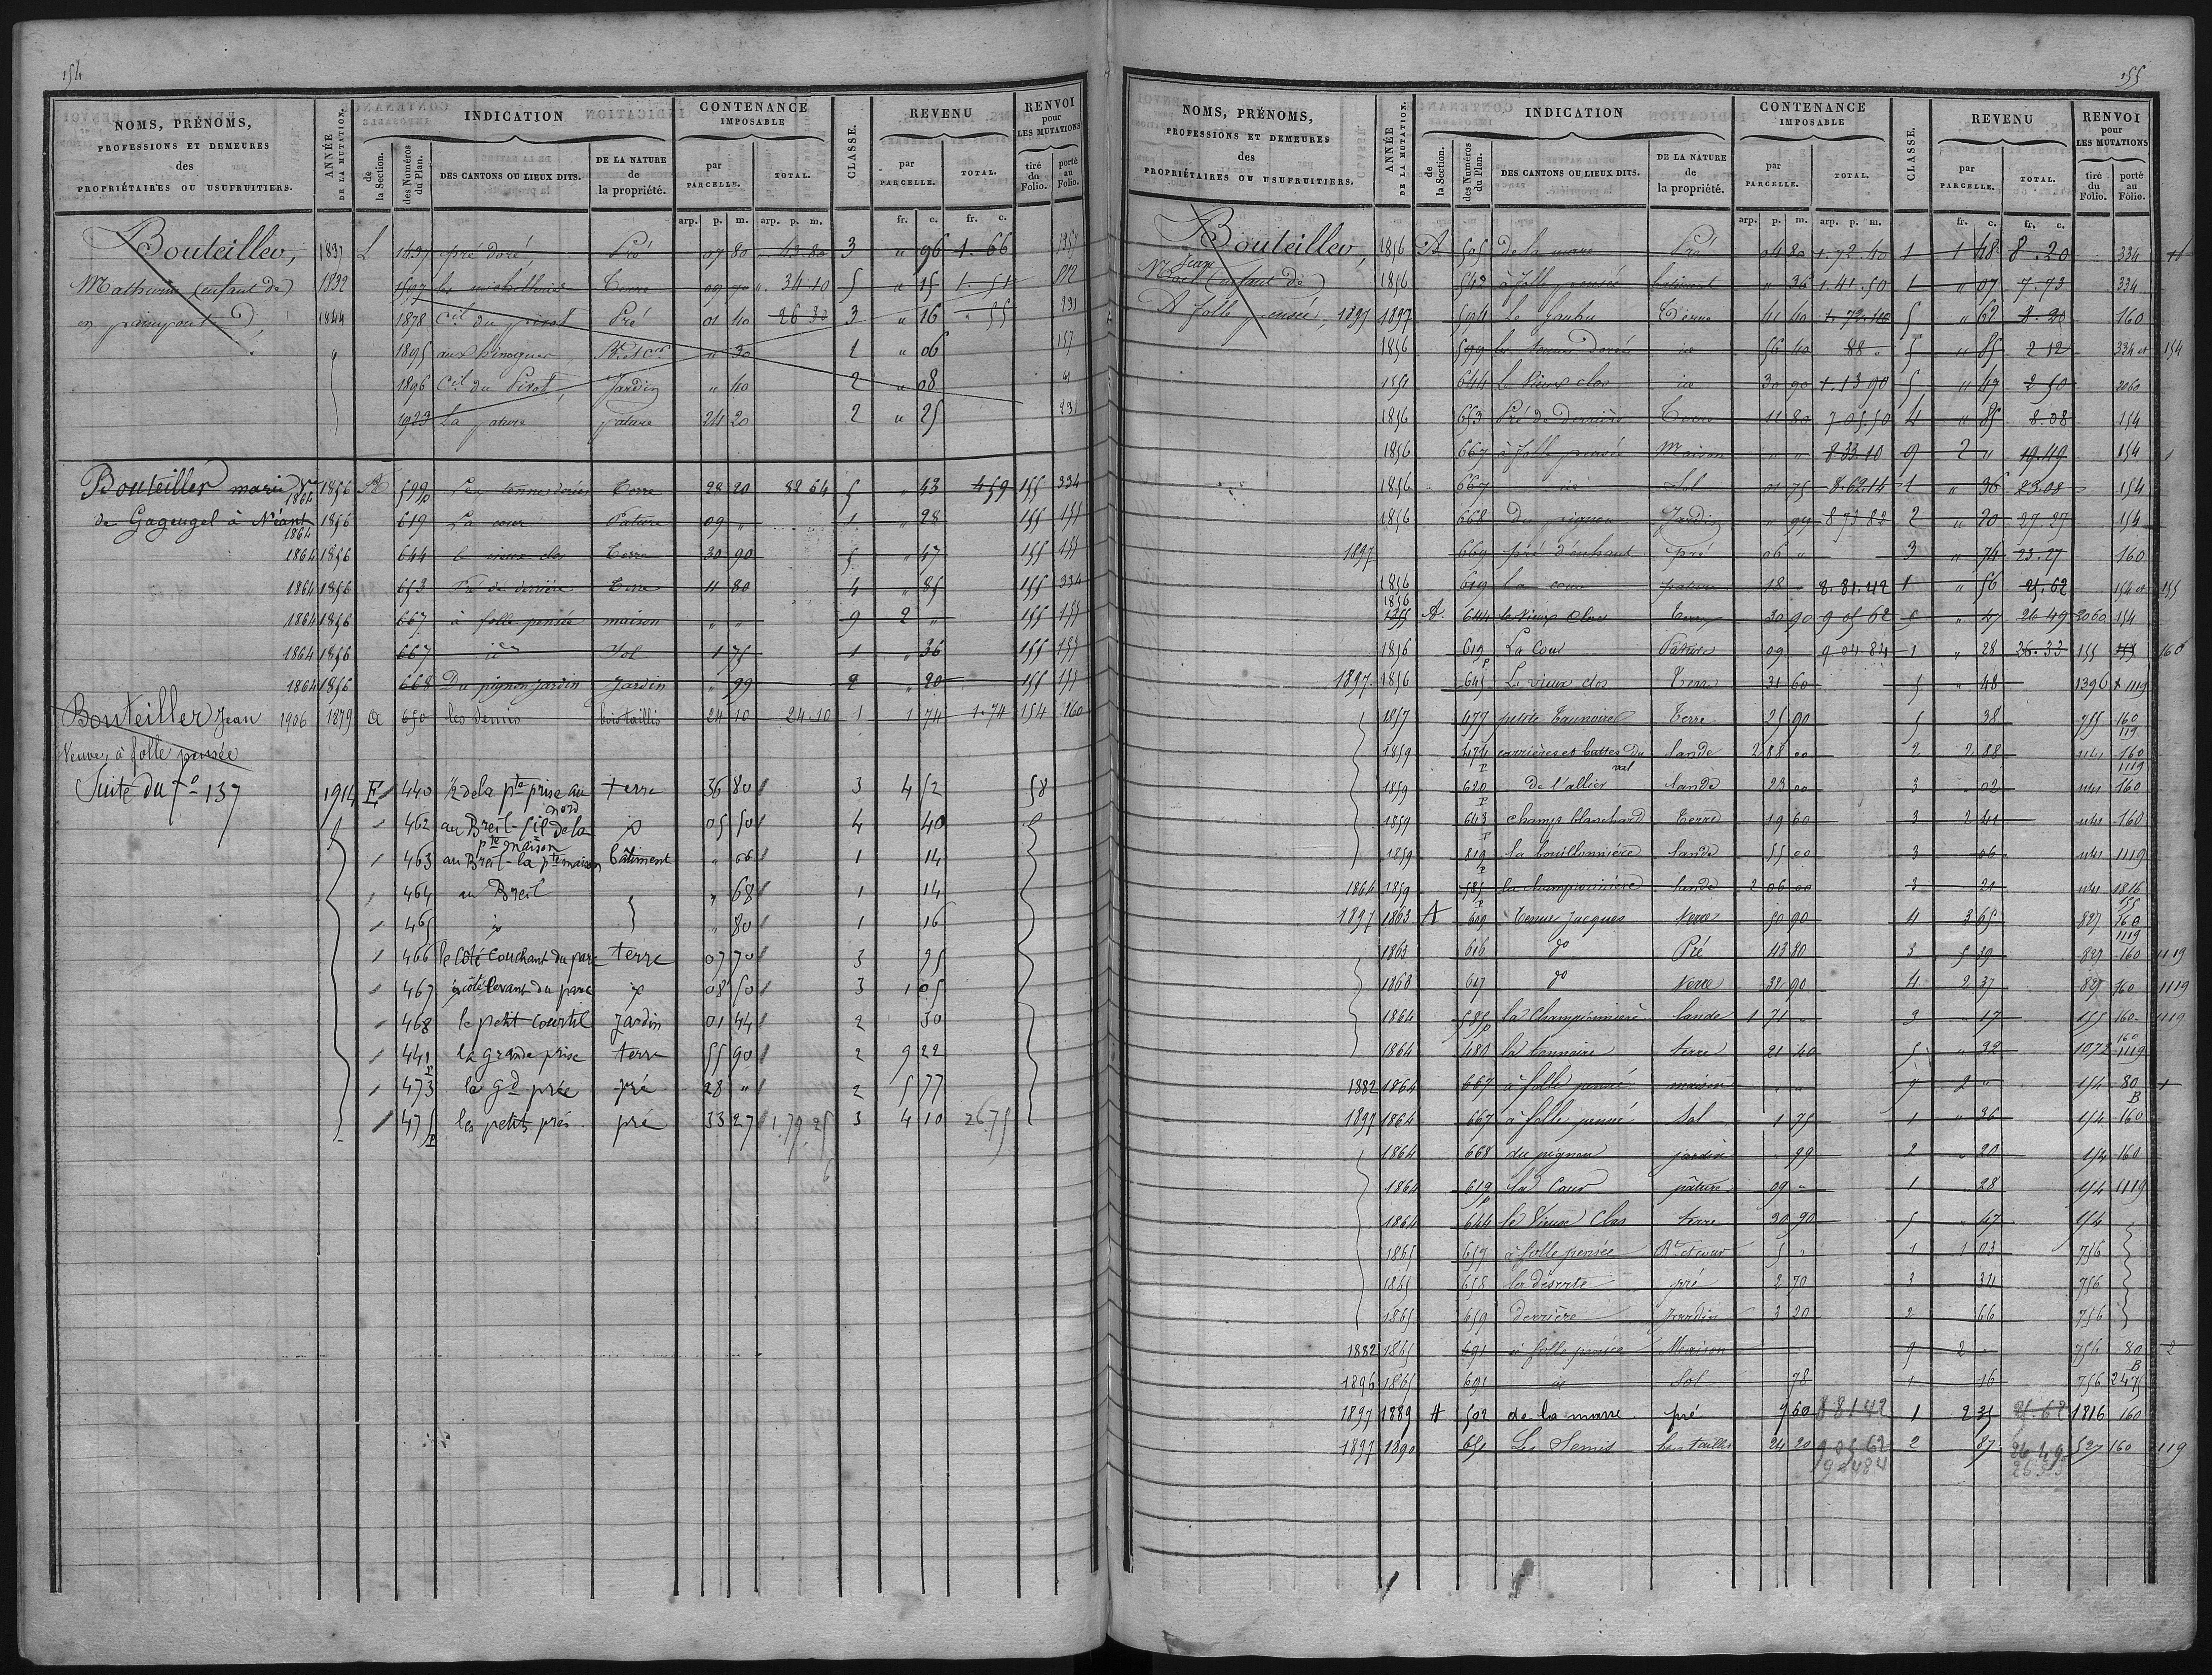 154
NOMS, PRÉNOMS, PROFESSIONS ET DEMEURES des PROPRIÉTAIRES OU USUFRUITIERS.
ANNÉE DE LA MUTATION.
INDICATION
de la Section.
des Numéros du Plan.
DES CANTONS OU LIEUX DITS.
DE LA NATURE de la propriété.
CONTENANCE IMPOSABLE
par PARCELLE.
TOTAL.
CLASSE.
REVENU
par PARCELLE.
TOTAL.
RENVOI pour LES MUTATIONS
tiré du Folio.
porté au Folio.
arp. p. m. arp. p. m. fr. c. fr. c.
Bouteiller, 1837 L pré doré Pré 07 80 43.80 3 " 96 1.66
Mathurin (enfant de) 1832 1597 Terre 09 70 ". 34 10 5 " 15 1.51 812
en 1844 1878 Cil du pivot Pré 01 40 26 30 3 " 16 " 55 231
" 1895 " 30 1 " 06 157
1896 Cil du Pivot Jardin " 40 2 " 08
1923 La pature pature 24 20 2 " 25 231
Bouteiller marie Ve 1864 1856 A 599p Les tennes dorées Terre 28 20 82 64 5 " 43 4 59 155 334
de Gageugel à Néant 1864 1856 619 La cour Pature 09 " 1 " 28 155 155
1864 1856 644 le vieux clos Terre 30 90 5 " 47 155 155
1864 1856 653 Pré de derrière Terre 11 80 4 " 85 155 334
1864 1856 667 à folle pensée maison " " 9 2 " 155 155
1864 1856 667 id Sol 1 75 1 " 36 155 155
1864 1856 668 Du pignon jardin Jardin " 99 2 " 20 155 155
Bouteiller Jean 1906 1879 a 650 les Semis bois taillis 24 10 24.10 1 1 74 1.74 154 160
Veuve, à folle pensée
Suite du fo 137 1914 E 440 ½ de la pte prise au nord terre 36 80 3 4 52 58
462 au Breil - sil de la pte maison 05 50 4 40
463 au Breil - la pte maison bâtiment " 66 1 14
464 au Breil " 68 1 14
465 " 80 1 16
466 le côté Couchant du parc terre 07 70 3 95
467 côté levant du parc 08 50 3 1 05
468 le petit Courtil Jardin 01 44 2 30
441p la grande prise terre 55 90 2 9 22
473 la gd prée pré 28 " 2 5 77
475p les petits prés pré 33 27 1.79.25 3 4 10 26.75
6
155
NOMS, PRÉNOMS, PROFESSIONS ET DEMEURES des PROPRIÉTAIRES OU USUFRUITIERS.
ANNÉE DE LA MUTATION.
INDICATION
de la Section.
des Numéros du Plan.
DES CANTONS OU LIEUX DITS.
DE LA NATURE de la propriété.
CONTENANCE IMPOSABLE
par PARCELLE.
TOTAL.
CLASSE.
REVENU
par PARCELLE.
TOTAL.
RENVOI pour LES MUTATIONS
tiré du Folio.
porté au Folio.
arp. p. m. arp. p. m. fr. c. fr. c.
Bouteiller, 1856 A 505 de la mare Pré 04 80 1.72.40 1 1 48 8.20 334
Jean
(enfant de) 1856 543 à folle pensée bâtiment " 36 1.41.50 1 " 07 7.73 334
A folle pensée, 1897 1897 594 Le Terre 41 40 1.72.40 5 " 62 8.20 160
1856 599 les tennes dorées id 56 40 88 " 5 " 85 2 12 334 et 154
644 Le Vieux clos id 30 90 1.13 90 5 " 47 2 50 2060
1856 653 Pré de derrière Terre 11 80 7.05.50 4 " 85 8.08 154
1856 667 à folle pensée Maison " " 8 33.10 9 2 " 19.49 154
1856 667 id Sol 01 75 8.62.14 1 " 36 23.08 154
1856 668 Du pignon Jardin " 99 8 73 82 2 " 20 27.27 154
1897 669 pré d'enhaut pré 06 " 3 " 74 23.27 160
1856 619 la cour pature 18 " 8.81.42 1 " 56 25.62 154 et 155
1856 A 644 le Vieux Clos Terre 30 90 9 05 62 5 " 47 26 49 2060 154
1856 619p La Cour Pature 09 9 04 84 1 " 28 26.33 155 160
1897 1856 645 Le vieux clos Terre 31 60 5 " 48 1396 1119
1857 477 petite Tannoire Terre 25 90 5 38 755 160 119
1859 474p carrières et buttes du val lande 2 88 00 2 2 88 160 1119
1859 620p de l'allier lande 23 00 3 " 02 160
1859 643p champ blanchard Terre 19 60 3 2 41 160
1859 819p la bouillonnière lande 55 00 3 06 1119
1864 1859 585p la championnière lande 2 06 00 3 21 1816 155
1897 1863 A 609 Tenue Jacques Terre 50 90 4 3 65 827 160 1119
1863 616 do Pré 43 80 3 5 39 827 160 1119
1863 617 do Terre 32 90 4 2 37 827 160 1119
1864 585p la Championnière lande 1 71 " 3 " 17 155 160 1119
1864 480 la tannoire terre 21 40 5 " 32 1072 160 1119
1882 1864 667 à folle pensée maison " " 9 2 " 154 80 B
1897 1864 667 à folle pensée Sol 1 75 1 " 36 154 160
1864 668 du pignon jardin " 99 2 " 20 154 160
1864 619p la Cour pâture 09 " 1 28 154 1119
1864 644 le Vieux Clos terre 30 90 5 " 47 154
1865 657 à folle pensée Bt et cour 5 " 1 1 03 756
1865 658 la déserte pré 2 70 3 34 756
1865 659 derrière Jardin 3 30 2 66 756
1882 1865 691 à folle pensée Maison 9 2 " 756 80 B 2
1896 1865 691 id Sol 78 1 16 756 2475
1897 1889 A 502 de la marre pré 9 60 8 81 42 1 2 35 25.62 1816 160
1897 1890 651 Les Semis bois taillis 24 20 9 05 62 2 87 26 49 527 160 1119
9 04 84 26 33